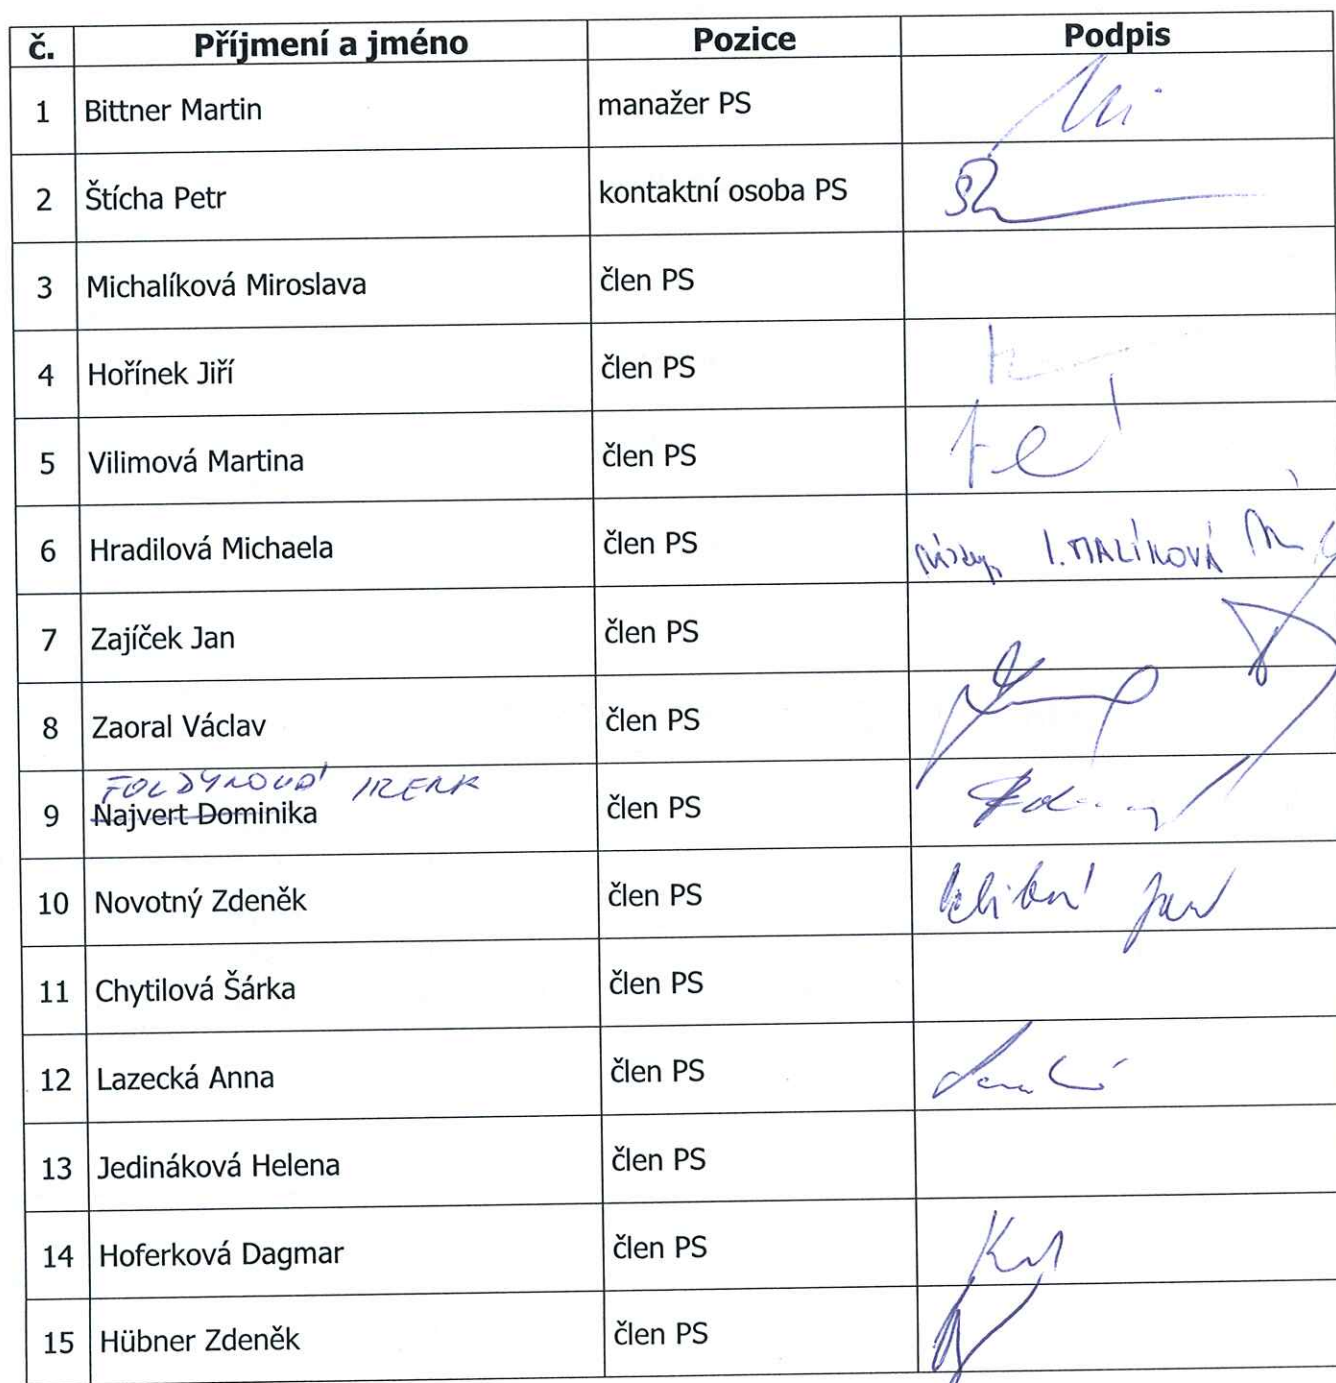 č. Příjmení a jméno Pozice Podpis
1 Bittner Martin manažer PS
2 Štícha Petr kontaktní osoba PS
3 Michalíková Miroslava člen PS
4 Hořínek Jiří člen PS
5 Vilimová Martina člen PS
6 Hradilová Michaela člen PS I. MALÍKOVÁ
7 Zajíček Jan člen PS
8 Zaoral Václav člen PS
FOLDYNOVÁ IRENA
9 Najvert Dominika člen PS
10 Novotný Zdeněk člen PS
11 Chytilová Šárka člen PS
12 Lazecká Anna člen PS
13 Jedináková Helena člen PS
14 Hoferková Dagmar člen PS
15 Hübner Zdeněk člen PS